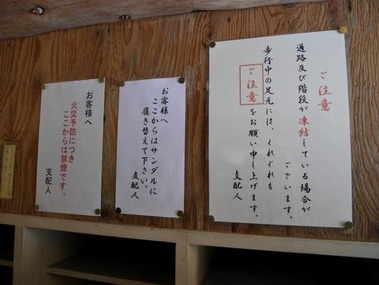 ご注意
通路及び階段が凍結している場合が
ございます。
歩行中の足元には、くれぐれも
ご注意をお願い申し上げます。
支配人
お客様へ
ここからはサンダルに
履き替えて下さい。
支配人
お客様へ
火災予防につき
ここからは禁煙です。
支配人